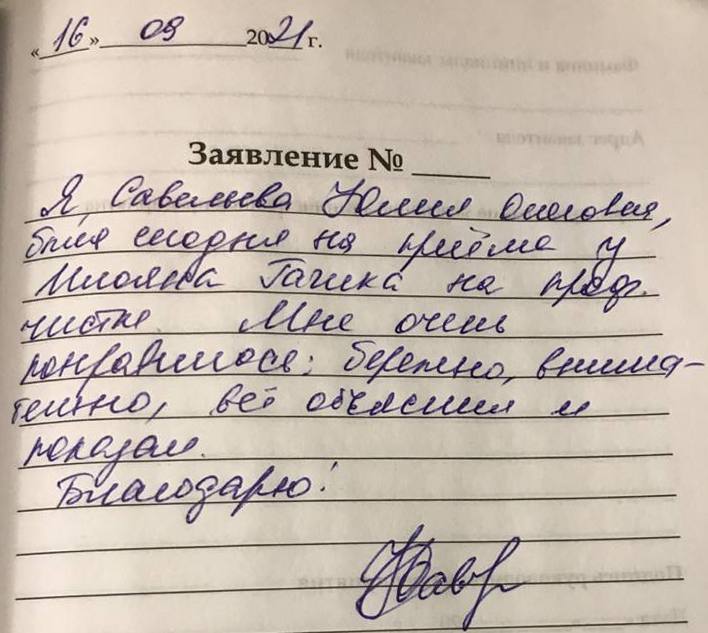 «16» 09 2021 г.
Заявление № ____
Я, Савельева Юлия Олеговна,
была сегодня на приёме у
Гагика на проф.
чистке. Мне очень
понравилось: бережно, внима-
тельно, всё объяснил и
показал.
Благодарю!